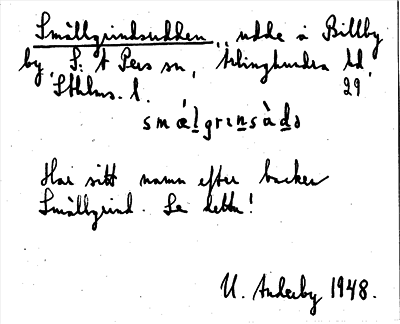 Smällgrindsudden, udde å Billby
by, S:t Pers sn, Ärlinghundra hd,
Sthlms. l. 29
smǽl̠grɪn̠sàd̠ə
Har sitt namn efter backen
Smällgrind. Se detta!
U. Anderby 1948.